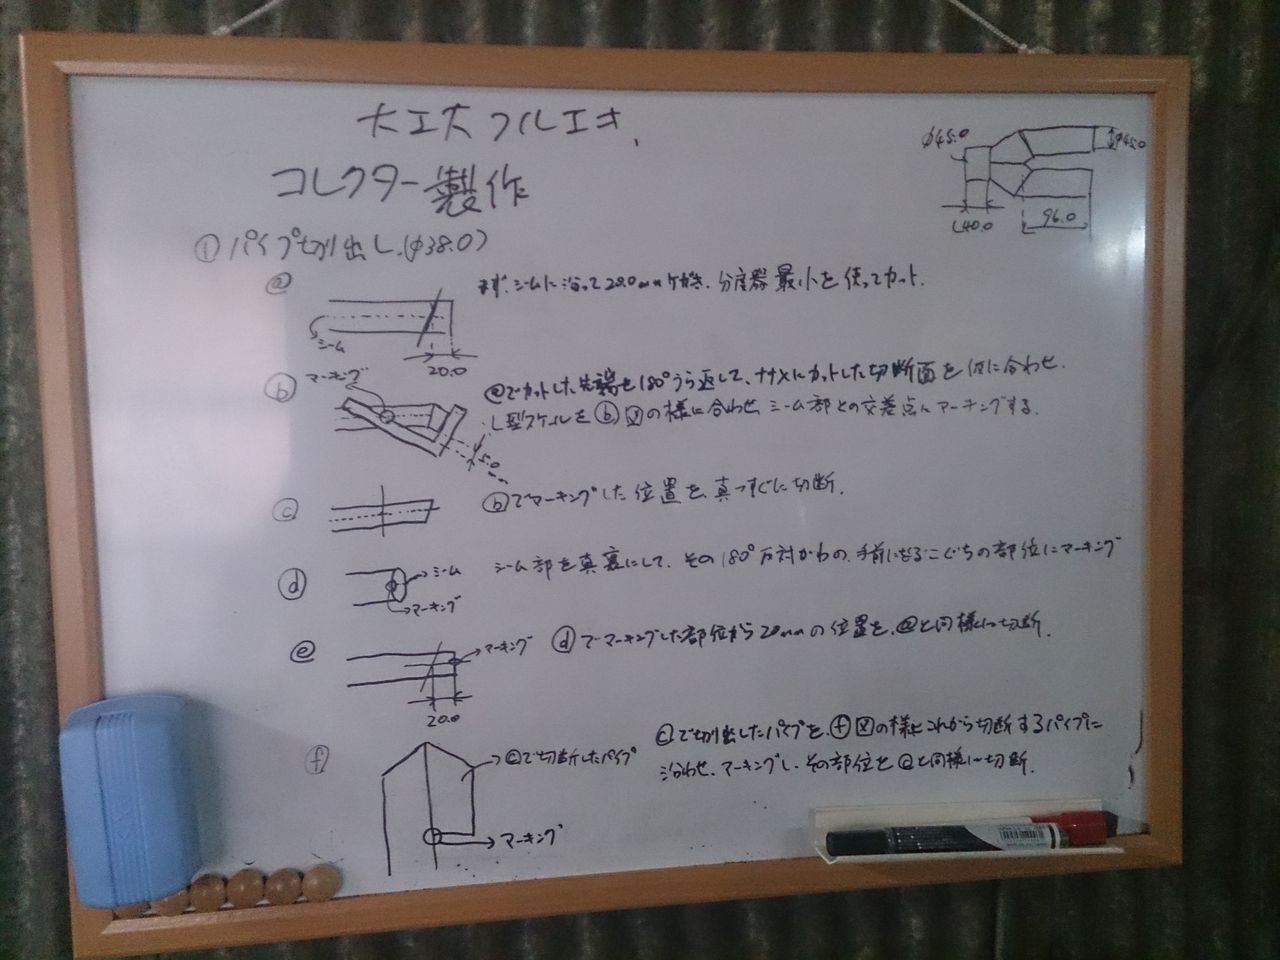 大工大フルエキ.
コレクター製作
φ45.0
φ45.0
L40.0
96.0
①パイプ切り出し.(φ38.0)
ⓐ
まず、シームに沿って20.0mmケガキ、分度器最小を使ってカット.
シーム
20.0
ⓑ
マーキング
ⓐでカットした先端を180°うら返して、ナナメにカットした切断面を仮に合わせ.
L型スケールをⓑ図の様に合わせ シーム部との交差点にマーキングする.
5.0
ⓒ
ⓑでマーキングした位置を、真っすぐに切断.
ⓓ
シーム
マーキング
シーム部を真裏にして、その180°反対がわの、手前になるこぐちの部位にマーキング
ⓔ
マーキング
20.0
ⓓでマーキングした部位から20mmの位置を、ⓐと同様に切断.
ⓕ
ⓒで切断したパイプ
マーキング
ⓒで切り出したパイプを、ⓕ図の様にこれから切断するパイプに
沿わせ、マーキングし、その部位をⓐと同様に切断.